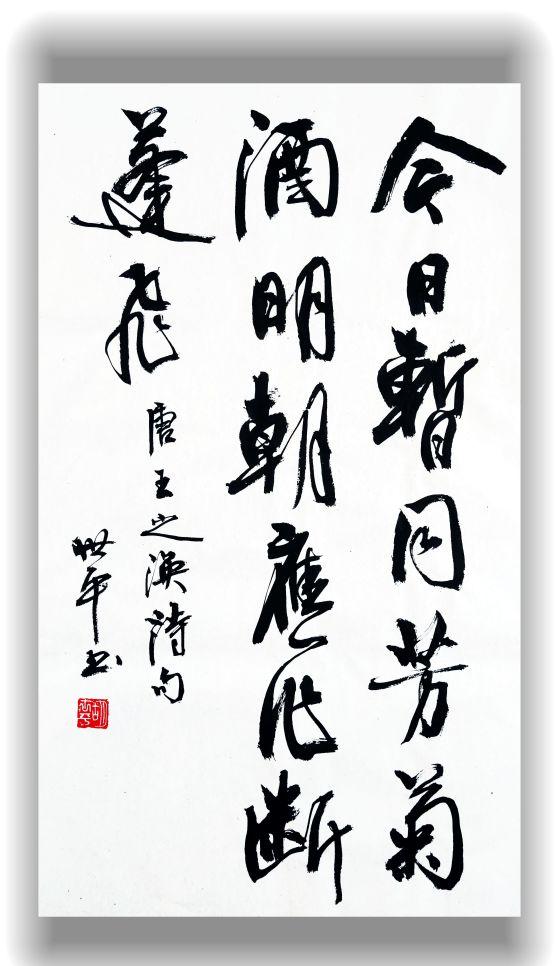 今日暫同芳菊
酒明朝應作斷
蓬飛
唐王之渙詩句
平书